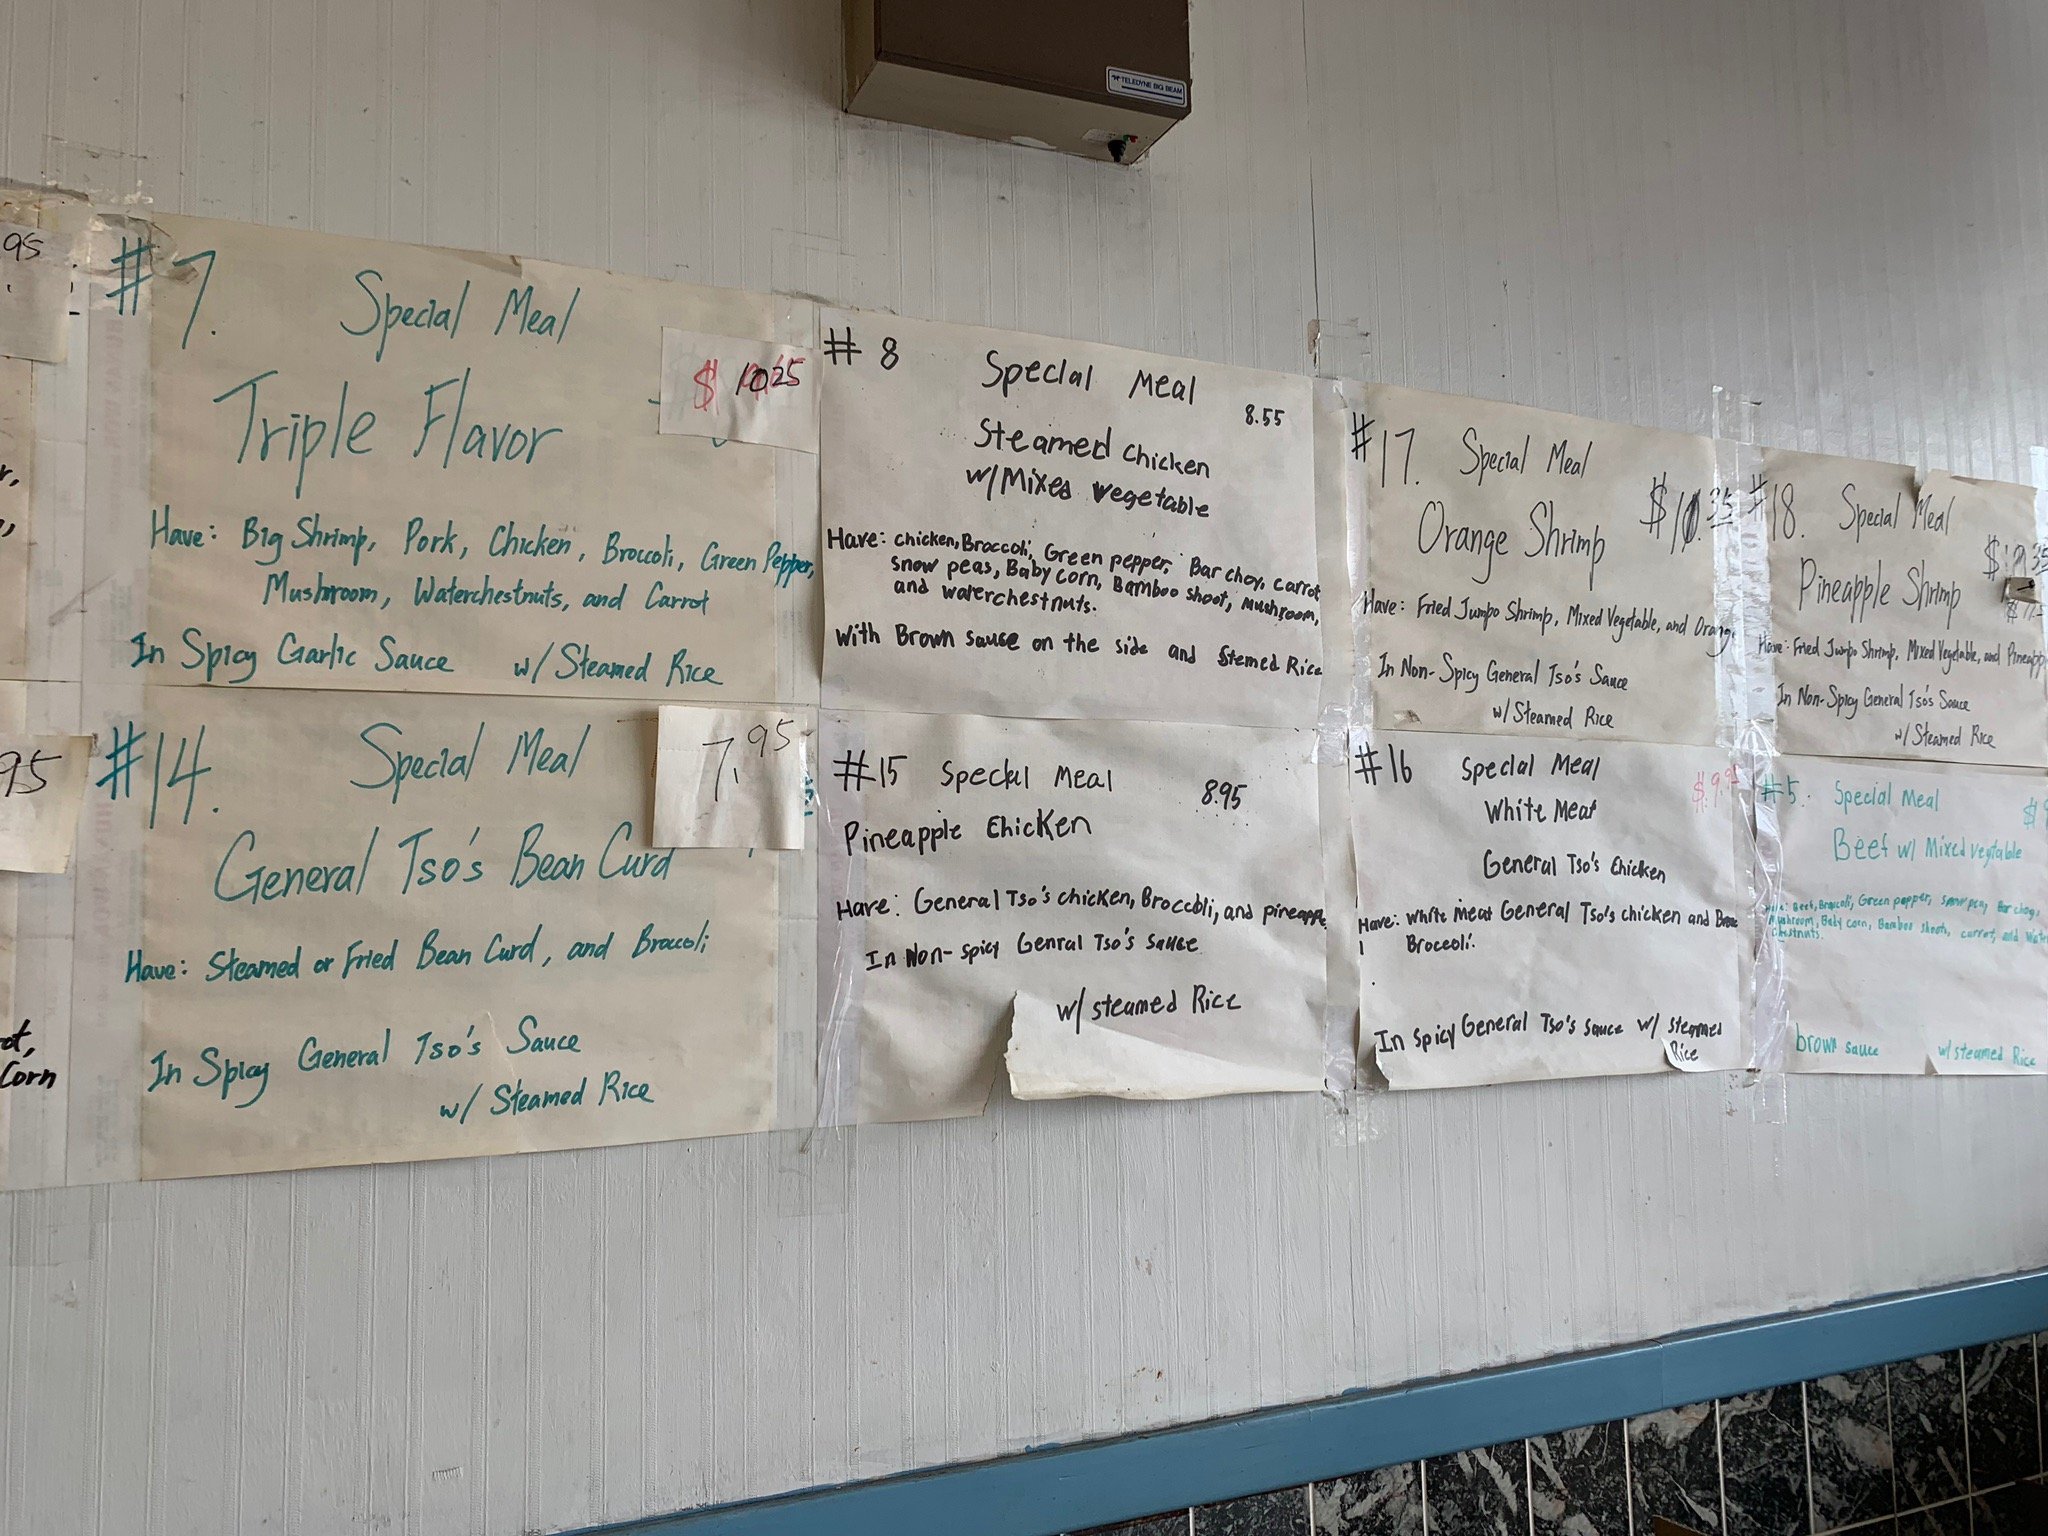 TELEDYNE BIG BEAM
95
#7. Special Meal
$ 10.25
Triple Flavor
Have: Big Shrimp, Pork, Chicken, Broccoli, Green Pepper,
Mushroom, Waterchestnuts, and Carrot
In Spicy Garlic Sauce w/ Steamed Rice
#8 Special Meal
8.55
Steamed Chicken
w/Mixed Vegetable
Have: chicken, Broccoli, Green pepper, Bar choy, carrot
snow peas, Baby corn, Bamboo shoot, Mushroom,
and waterchestnuts.
With Brown sauce on the side and Stemed Rice
#17. Special Meal
$10.35
Orange Shrimp
Have: Fried Jumpo Shrimp, Mixed Vegetable, and Orange
In Non-Spicy General Tso's Sauce
w/ Steamed Rice
#18. Special Meal
Pineapple Shrimp
Have: Fried Jumpo Shrimp, Mixed Vegetable, and Pineapp
In Non-Spicy General Tso's Sauce
w/ Steamed Rice
95
Corn
#14. Special Meal
7.95
General Tso's Bean Curd
Have: Steamed or Fried Bean Curd, and Broccoli
In Spicy General Tso's Sauce
w/ Steamed Rice
#15 Special Meal
8.95
Pineapple Chicken
Have: General Tso's chicken, Broccoli, and pineapple
In Non-spicy Genral Tso's sauce
w/ steamed Rice
#16 Special Meal
$9.95
White Meat
General Tso's Chicken
Have: white meat General Tso's chicken and
Broccoli.
In spicy General Tso's sauce w/ steamed
Rice
#5. Special Meal
Beef w/ Mixed vegtable
Beef, Broccoli, Green pepper, snow pea, Bar choy,
Mushroom, Baby corn, Bamboo shoots, carrot, and Wate
chestnuts.
brown sauce w/ steamed Rice